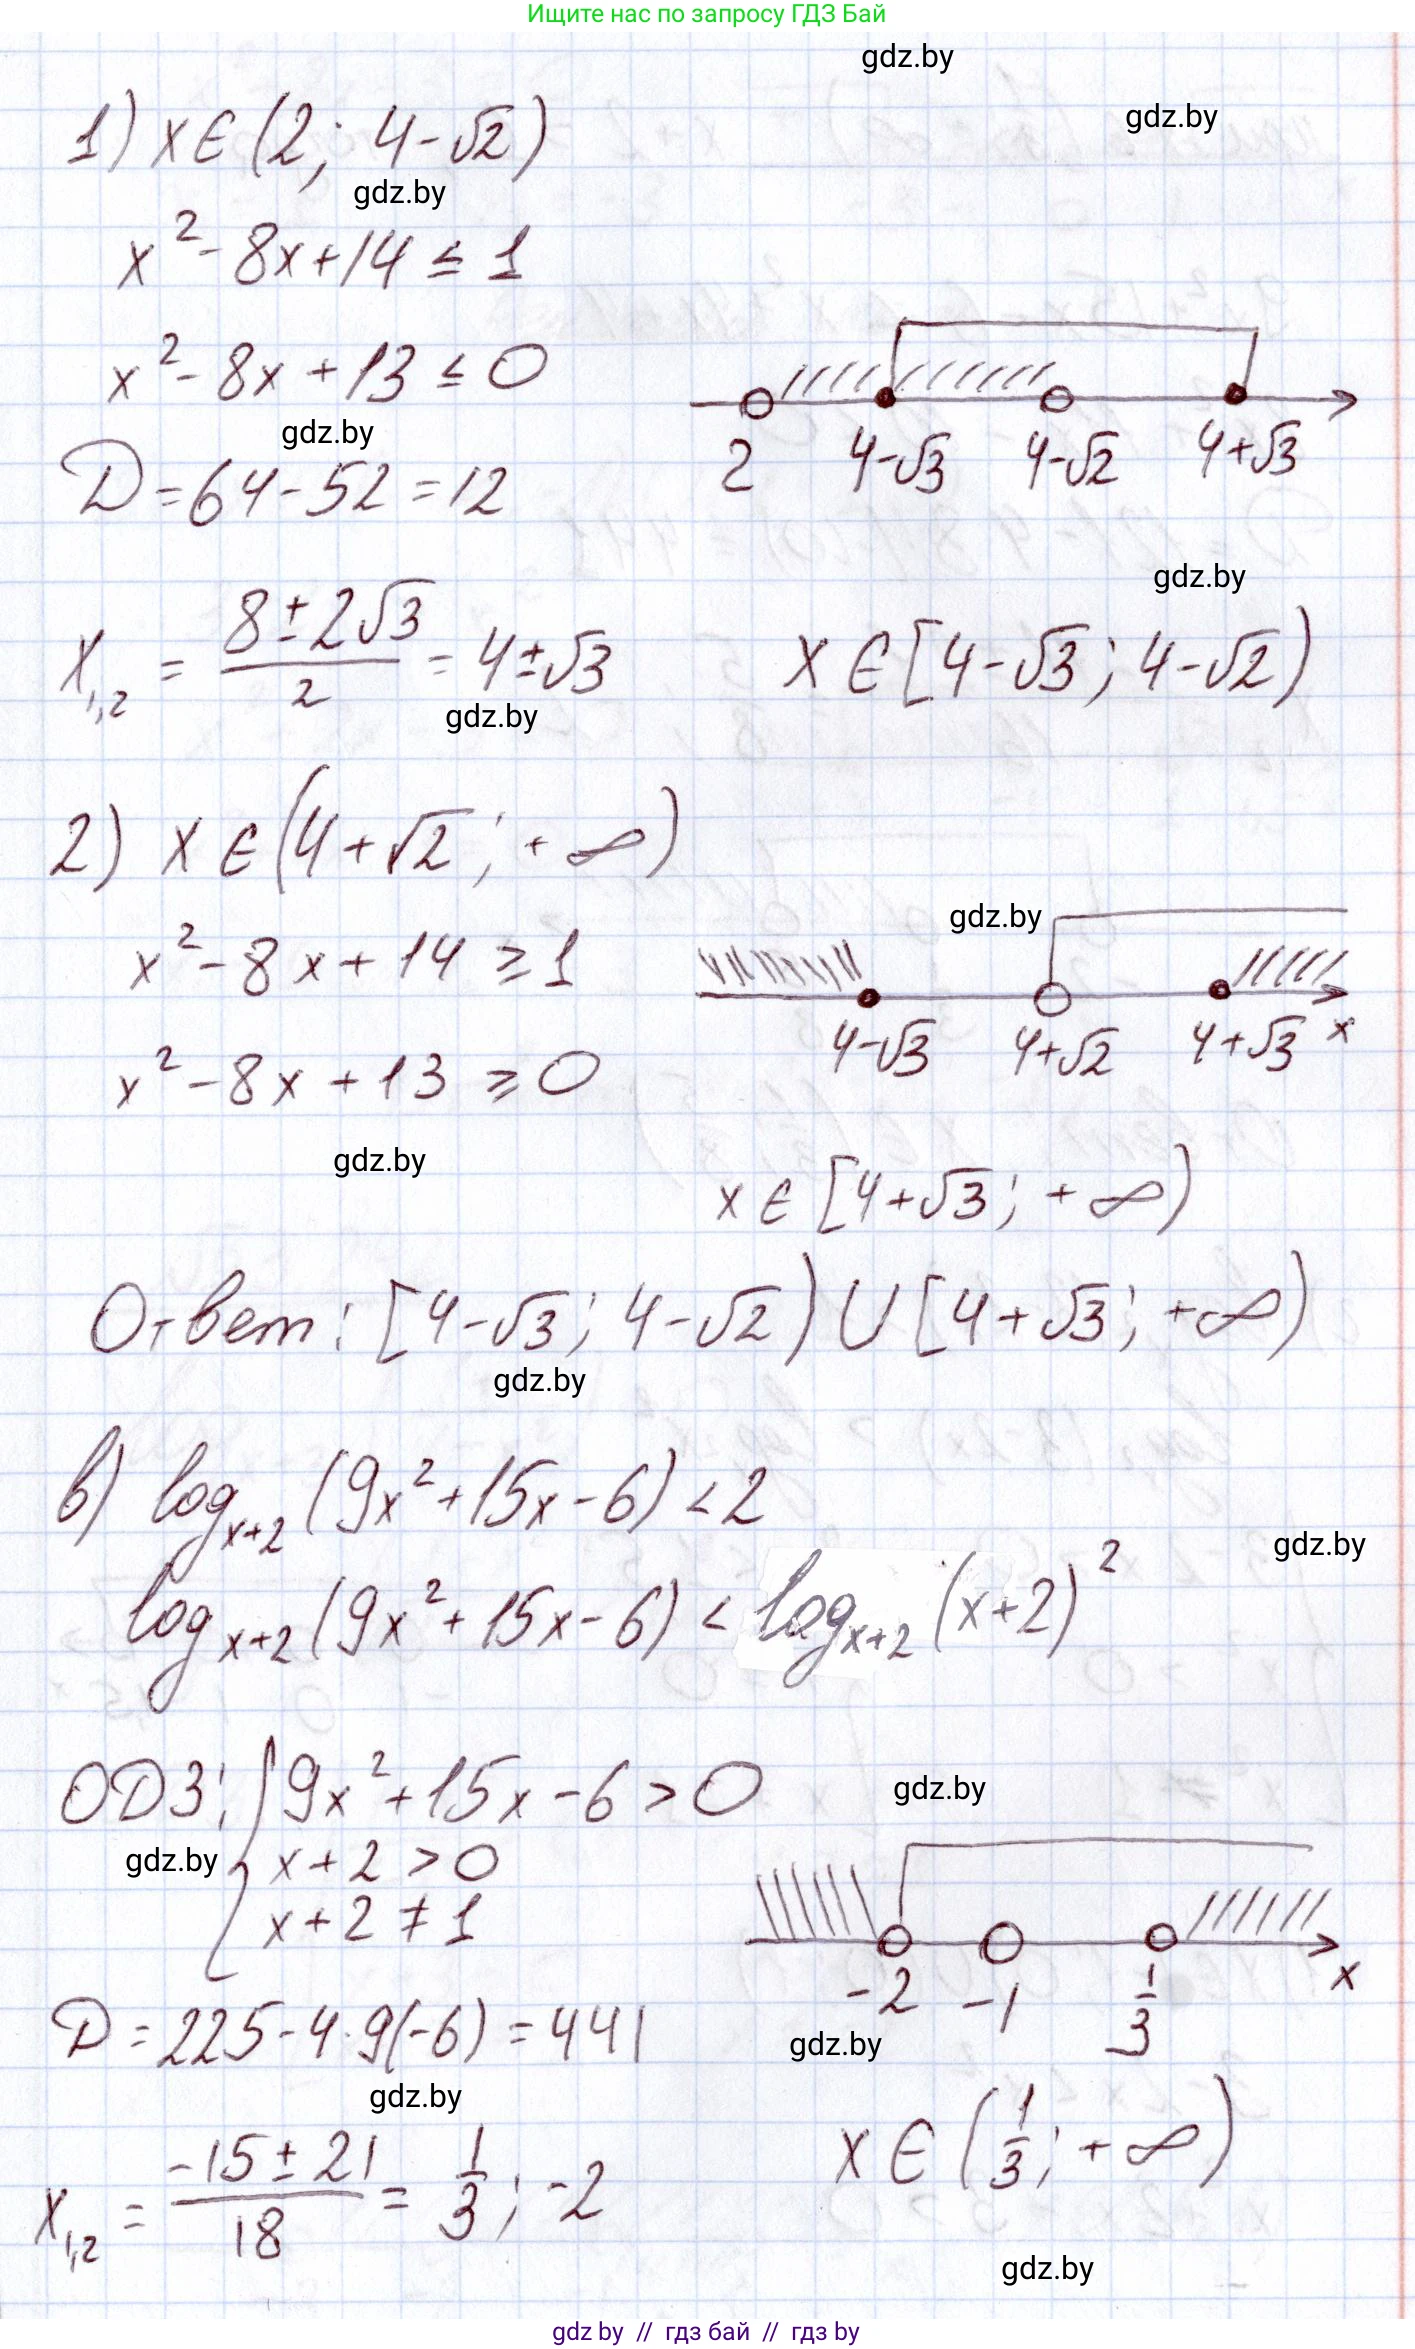 Ищите нас по запросу ГДЗ Бай
gdz.by
gdz.by
1) x ∈ (2; 4-√2)
gdz.by
x² - 8x + 14 ≤ 1
x² - 8x + 13 ≤ 0
gdz.by
2 4-√3 4-√2 4+√3
D = 64 - 52 = 12
gdz.by
x₁,₂ = (8 ± 2√3)/2 = 4 ± √3
x ∈ [4-√3; 4-√2)
gdz.by
2) x ∈ (4+√2; +∞)
gdz.by
x² - 8x + 14 ≥ 1
4-√3 4+√2 4+√3 x
x² - 8x + 13 ≥ 0
gdz.by
x ∈ [4+√3; +∞)
Ответ: [4-√3; 4-√2) ∪ [4+√3; +∞)
gdz.by
в) log_{x+2} (9x² + 15x - 6) < 2
gdz.by
log_{x+2} (9x² + 15x - 6) < log_{x+2} (x+2)²
ОДЗ: { 9x² + 15x - 6 > 0
gdz.by
gdz.by
x + 2 > 0
x + 2 ≠ 1
-2 -1 1/3 x
D = 225 - 4·9(-6) = 441
gdz.by
gdz.by
x₁,₂ = (-15 ± 21)/18 = 1/3; -2
x ∈ (1/3; +∞)
gdz.by
gdz by // гдз бай // гдз by